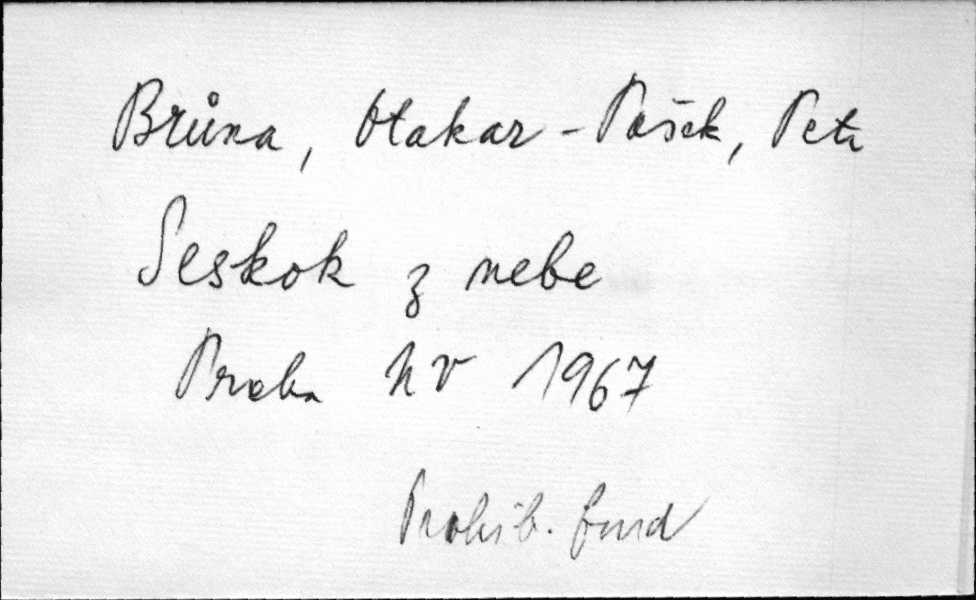 Brůna, Otakar - Pašek, Petr
Seskok z nebe
Praha NV 1967
Prohib. fond